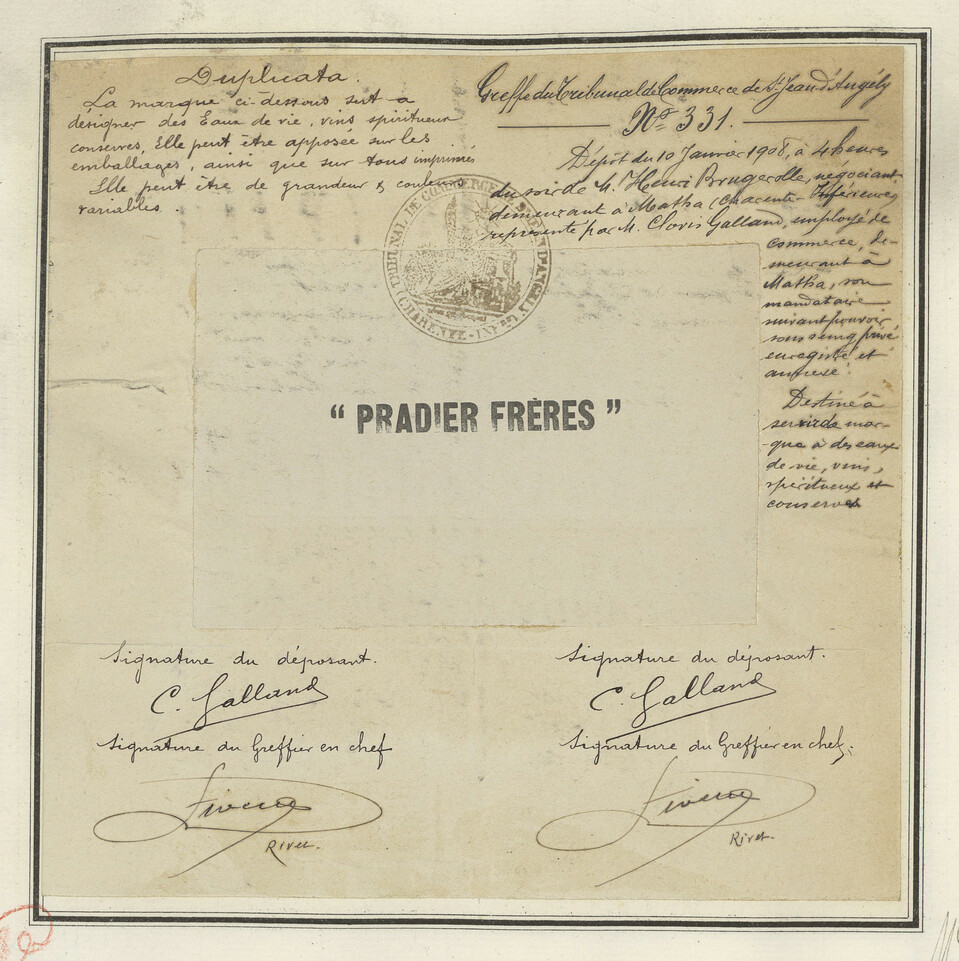 Duplicata.
La marque ci-dessous sert à
désigner des Eaux de vie, vins spiritueux
conserves, Elle peut être apposée sur les
emballages, ainsi que sur tous imprimés
Elle peut être de grandeur & couleurs
variables.
Greffe du Tribunal de Commerce de St Jean d'Angély
No 331.
Dépôt du 10 Janvier 1908, à 4 heures
du soir de M. Henri Brugerolle, négociant
demeurant à Matha (Charente-Inférieure)
représenté par M. Clovis Galland, employé de
commerce, de-
meurant à
Matha, son
mandataire
suivant pouvoir
sous seing privé
enregistré et
annexé.
Destiné à
servir de mar-
-que à des eaux
de vie, vins,
spiritueux et
conserves
TRIBUNAL DE COMMERCE DE ST JEAN D'ANGELY
(CHARENTE-INFRE)
" PRADIER FRÈRES "
Signature du déposant.
C. Galland
Signature du Greffier en chef
Rivet.
Signature du déposant.
C. Galland
Signature du Greffier en chef.
Rivet.